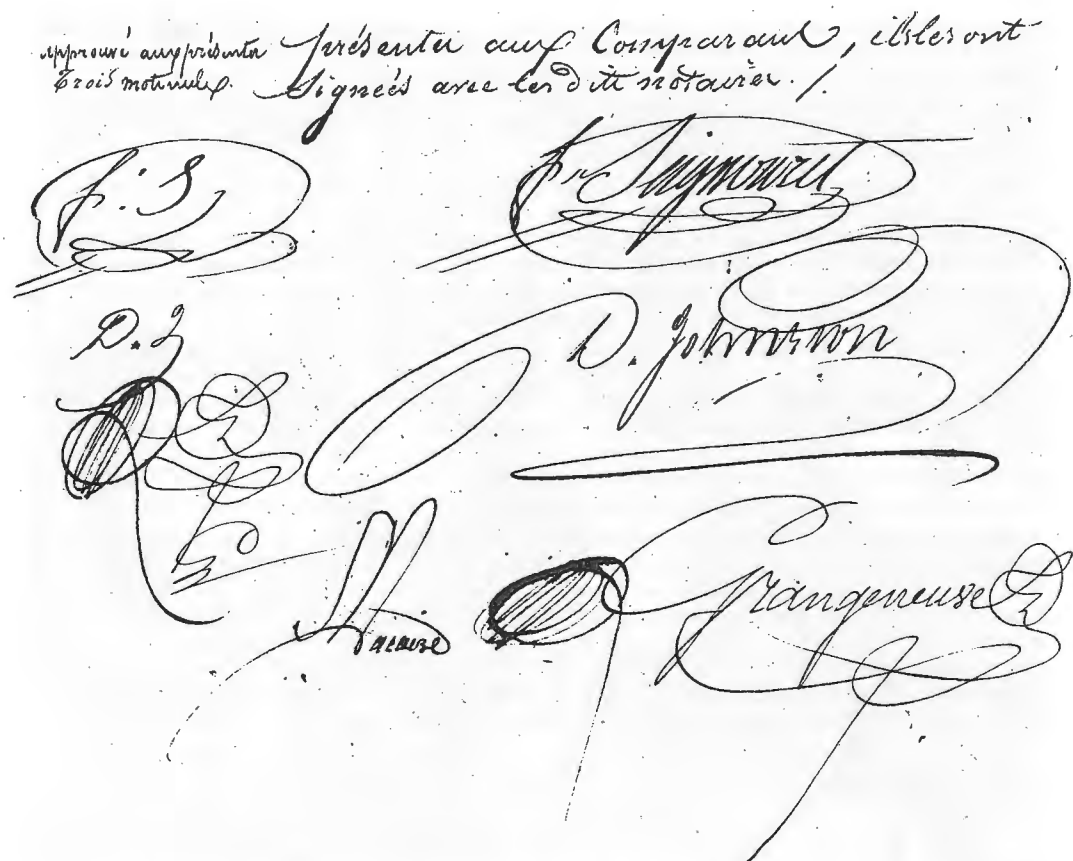 approuvé aux présentes
trois mots nuls.
présentes aux Comparant, ils les ont
Signées avec les dits notaires./.
f: S
f. Seignouret
D. J
D. Johnston
Grangeneuve